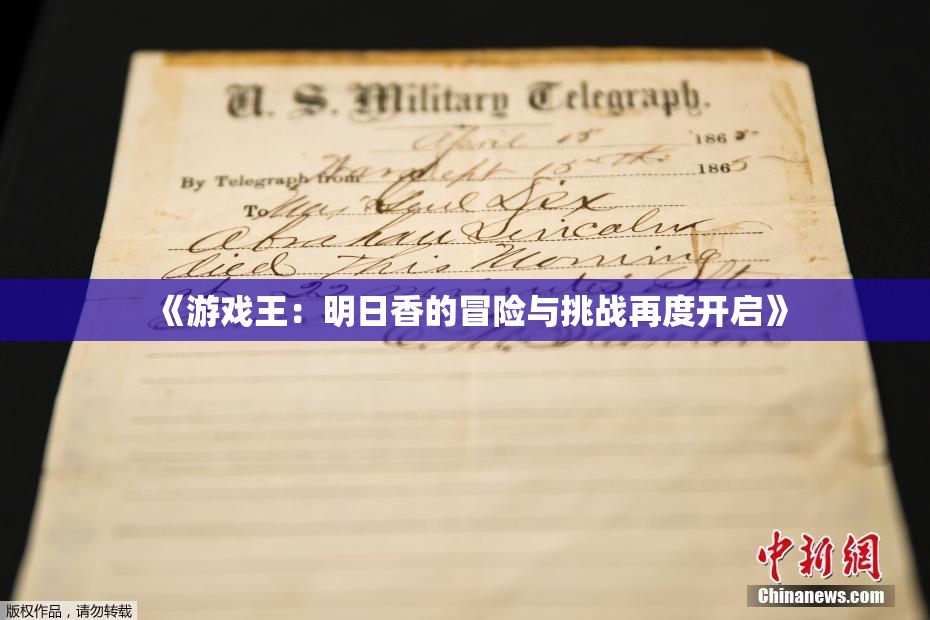 U. S. Military Telegraph.
April 15 1865
By Telegraph from War Dept 15th 1865
To Maj Genl Dix
Abraham Lincoln
died This Morning
at 22 minutes after
《游戏王：明日香的冒险与挑战再度开启》
中新网
Chinanews.com
版权作品，请勿转载